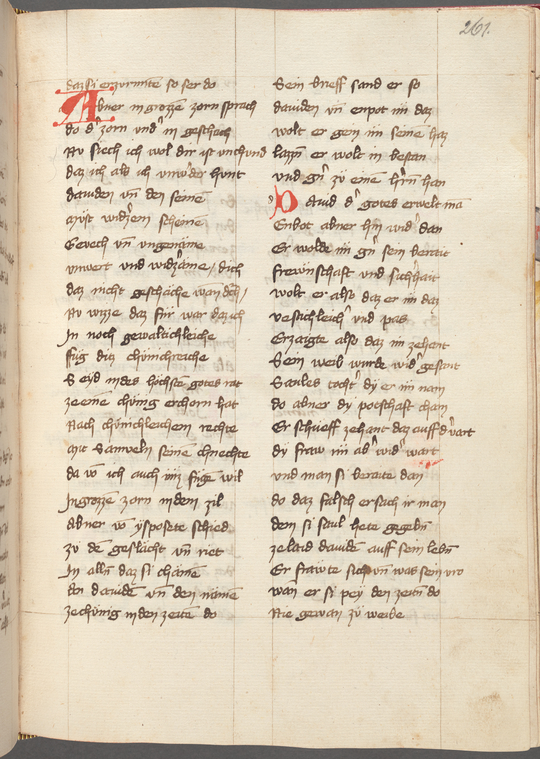 261.
daz si erzurnte so ser do
Abner in grozze zorn sprach
do d' zorn und' in geschach
Nu siech ich wol dir ist unchund
daz ich als ich unw'der hunt
dauiden vn den seinē
must widʒem scheine
Gevech vn ungenāme
unwert und widʒāme / dich
daz nicht geschāche wan dich /
Nu wizze daz für war daz ich
In noch gewaltichleiche
füg ditz chünichreiche
Seyd in des höchstē gotes rat
ze eine chünig erchorn hat
Nach chünichleichem rechte
mit Samueln seinē chnechte
da vō ich auch imʒ fügē wil
In grozze zorn in dem zil
Abner vō ysposete schied
zu dē geslächt vn riet
In alln daz si chāmē
den dauidē vn den nāmē
ze chünig in den zeitē do
Sein brieff sand er so
dauiden vn enpot im daz
wolt er gen im seinē haz
lazzn er wolt in bestan
und gn' zu einē h'rn han
Dauid d' gotes erwelt mā
Enbot abner hin wid' dan
Er wolde im gn' sein berait
frewntschaft und sichhait
wolt er also daz er im daz
vestichleich' und pas
Erzaigte also daz im zehant
Sein weib wurde wid' gesant
Saules tocht' dy er im nam
do abner dy potschaft cham
Er schueff zehant daz auff d' vart
dy fraw im ab' wid' wart
und man si beraite dan
do daz falsch ersach ir man
dem si saul hete gegebn
ze laid dauidē auff sein lebn
Er frawte sich vn was sein vro
wan er si pey den zeitn do
Nie gewan zu weibe